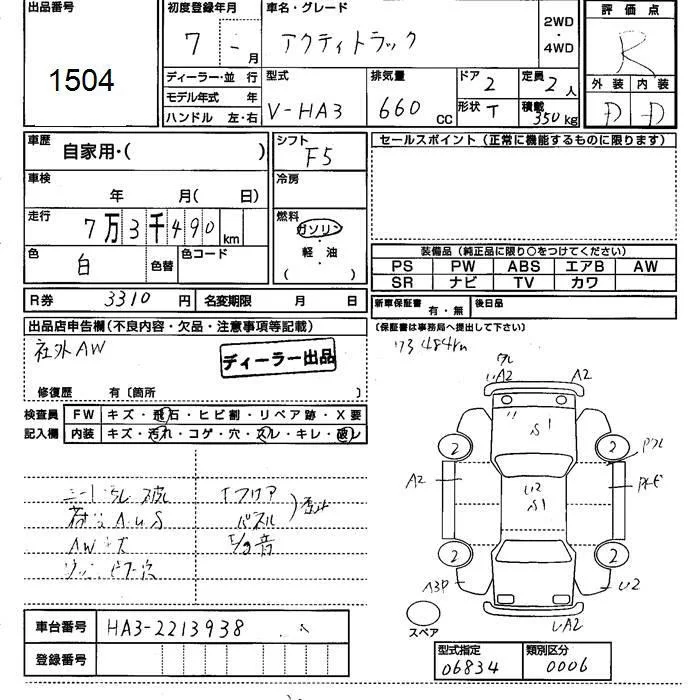 出品番号
1504
初度登録年月
7 - 月
車名・グレード
アクティトラック
2WD
・
4WD
評価点
R
外装 内装
D D
ディーラー・並 行
モデル年式 年
ハンドル 左・右
型式
V-HA3
排気量
660 CC
ドア 2
形状 T
定員 2 人
積載 350kg
車歴
自家用・( )
シフト
F5
セールスポイント (正常に機能するものに限ります)
車検
年 月( 日)
冷房
走行
7万3千490 km
燃料
ガソリン
・
軽・油
( )
色
白
色替
色コード
装備品 (純正品に限り○をつけてください)
PS PW ABS エアB AW
SR ナビ TV カワ
R券 3310 円 名変期限 月 日
新車保証書 有・無 後日品
(保証書は事務局へ提出して下さい)
出品店申告欄(不良内容・欠品・注意事項等記載)
社外AW
ディーラー出品
修復歴 有〔箇所 〕
73484km
検査員
記入欄
FW キズ・飛石・ヒビ割・リペア跡・X要
内装 キズ・汚れ・コゲ・穴・スレ・キレ・破レ
A2 A2
S1
2 2
A2
U2
S1
2 2
A3P U2
UA2
スペア
AWキズ
パネル
E/g音
車台番号 HA3-2213938
登録番号
型式指定 06834
類別区分 0006